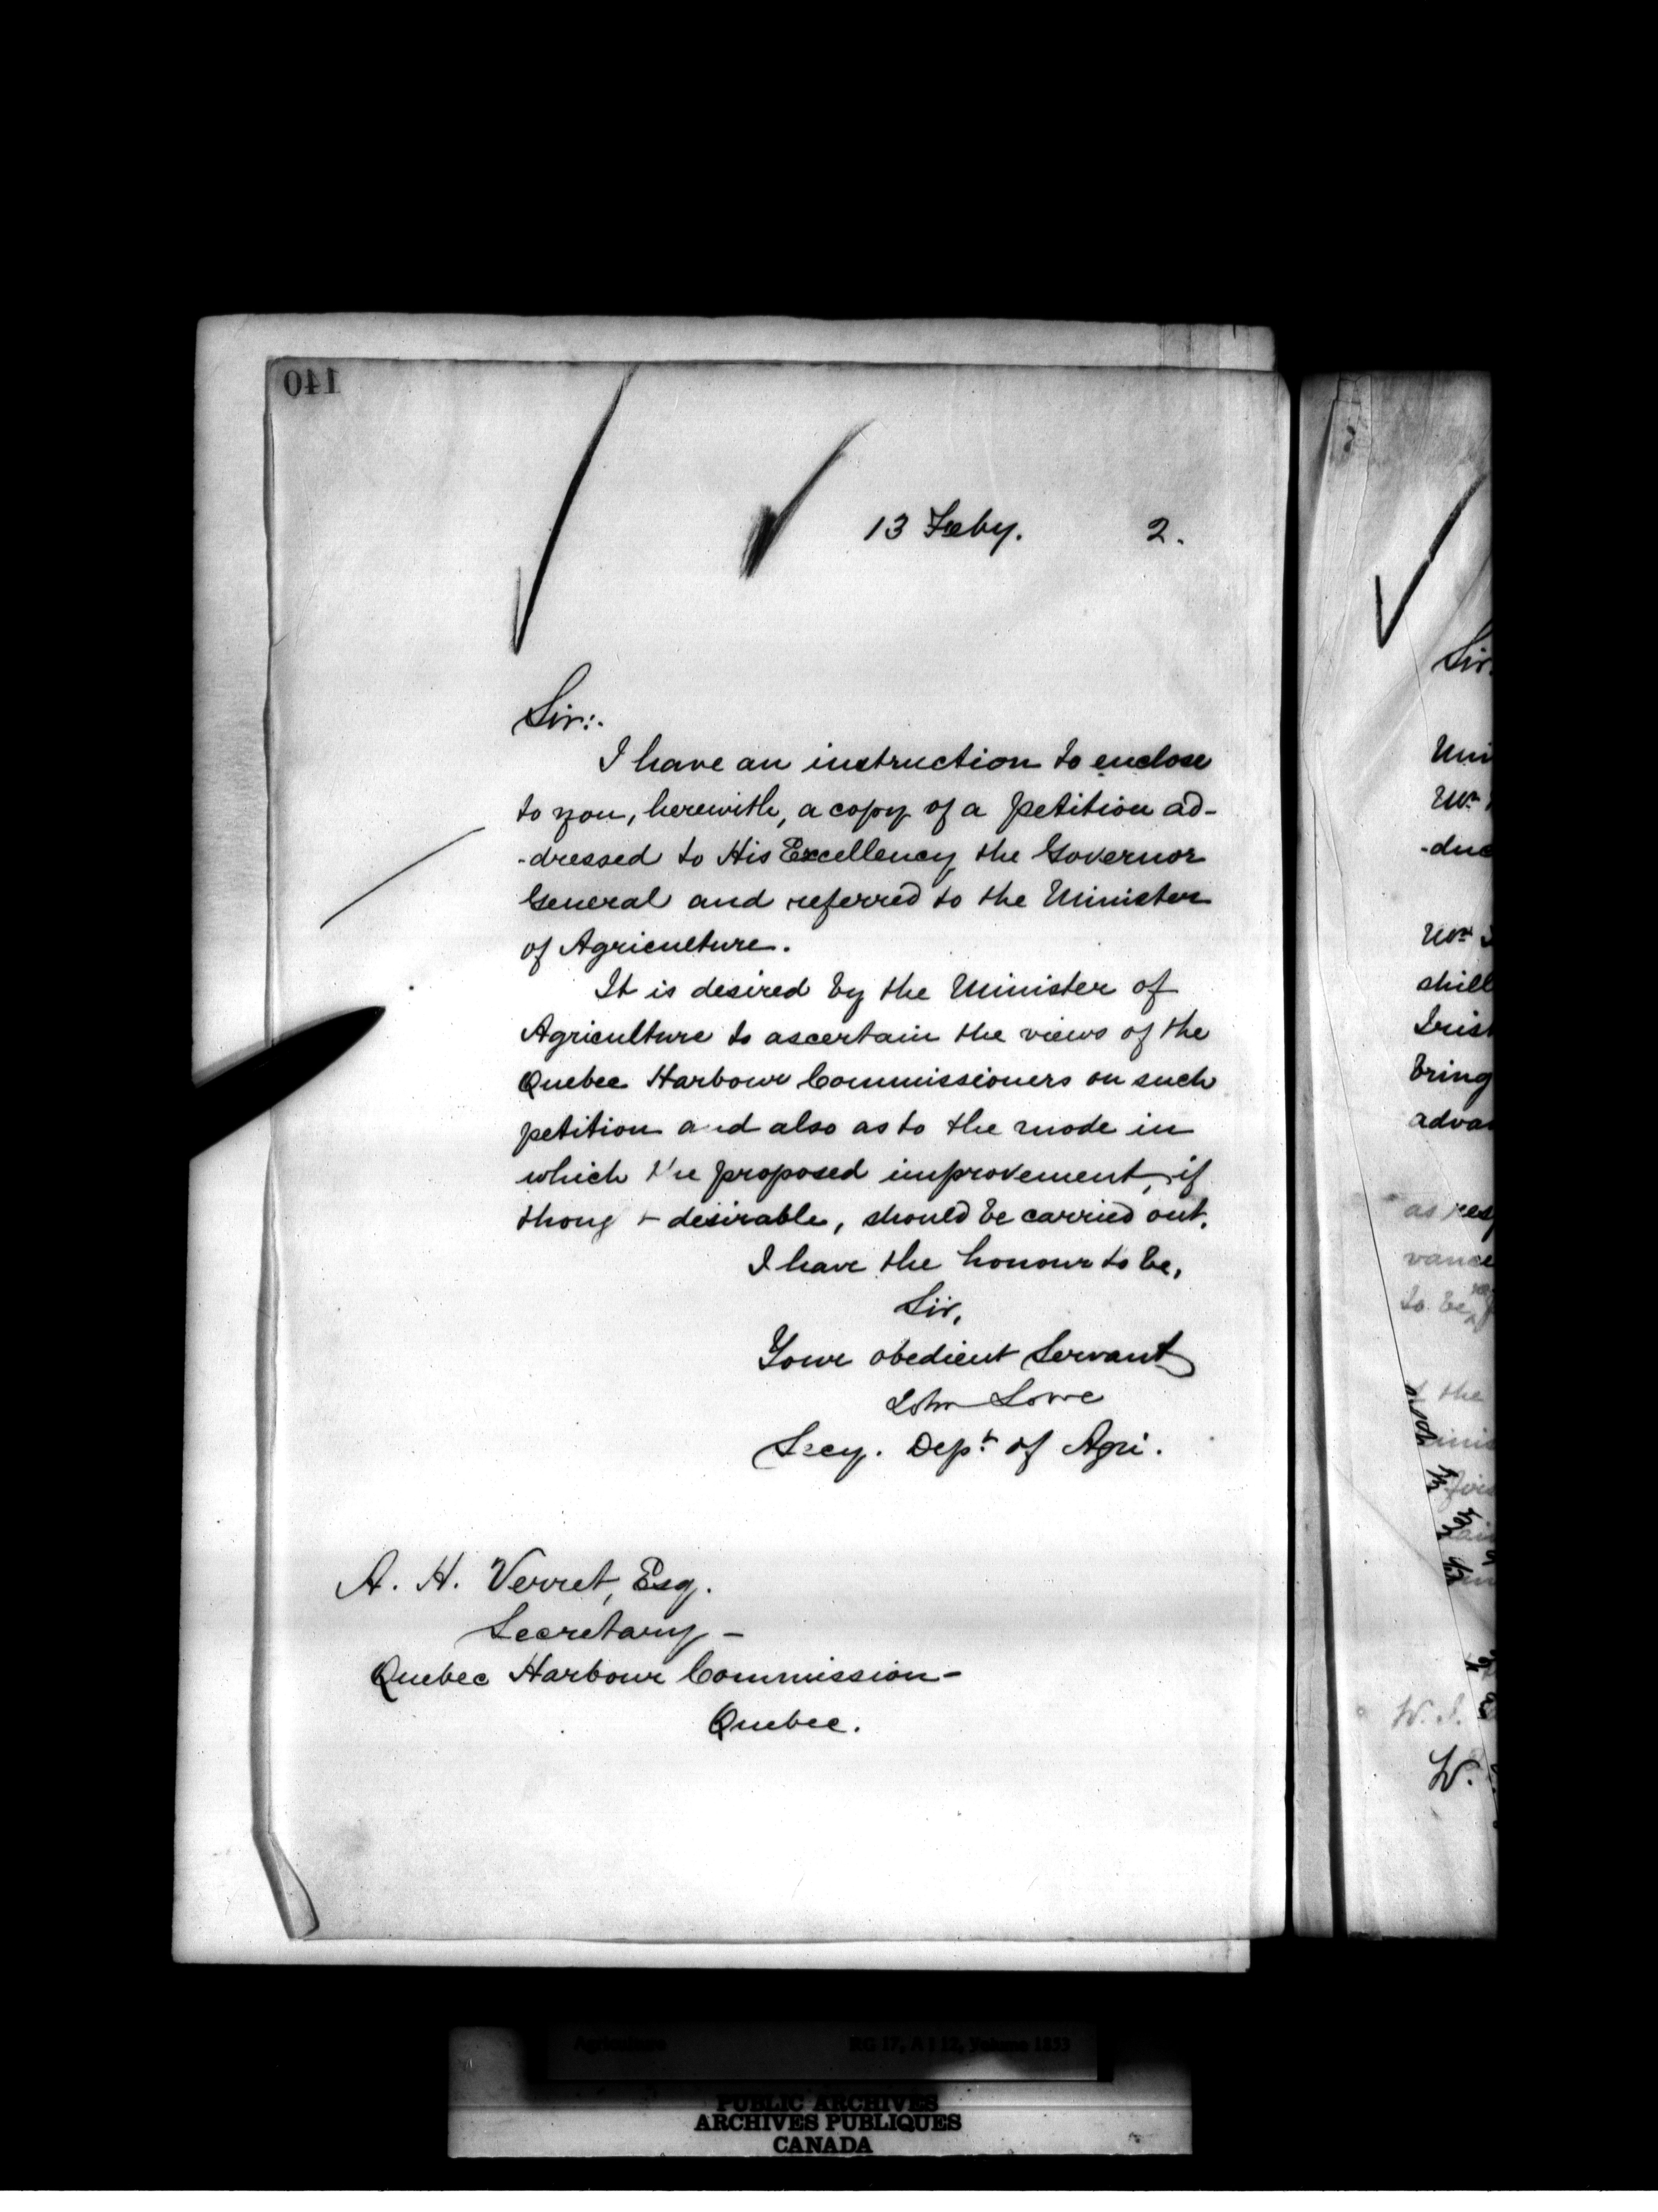 140
13 Feby. 2.
Sir:.
I have an instruction to enclose
to you, herewith, a copy of a petition ad-
-dressed to His Excellency the Governor
General and referred to the Minister
of Agriculture.
It is desired by the Minister of
Agriculture to ascertain the views of the
Quebec Harbour Commissioners on such
petition and also as to the mode in
which the proposed improvement, if
thought desirable, should be carried out.
I have the honour to be,
Sir,
Your obedient Servant
John Lowe
Secy. Dept. of Agri.
A. H. Verret, Esq.
Secretary -
Quebec Harbour Commission -
Quebec.
Sir
-duc
shill
Bring
as res
vance
to be
the
W. I.
W.
Agriculture RG 17, A I 12, Volume 1833
PUBLIC ARCHIVES
ARCHIVES PUBLIQUES
CANADA